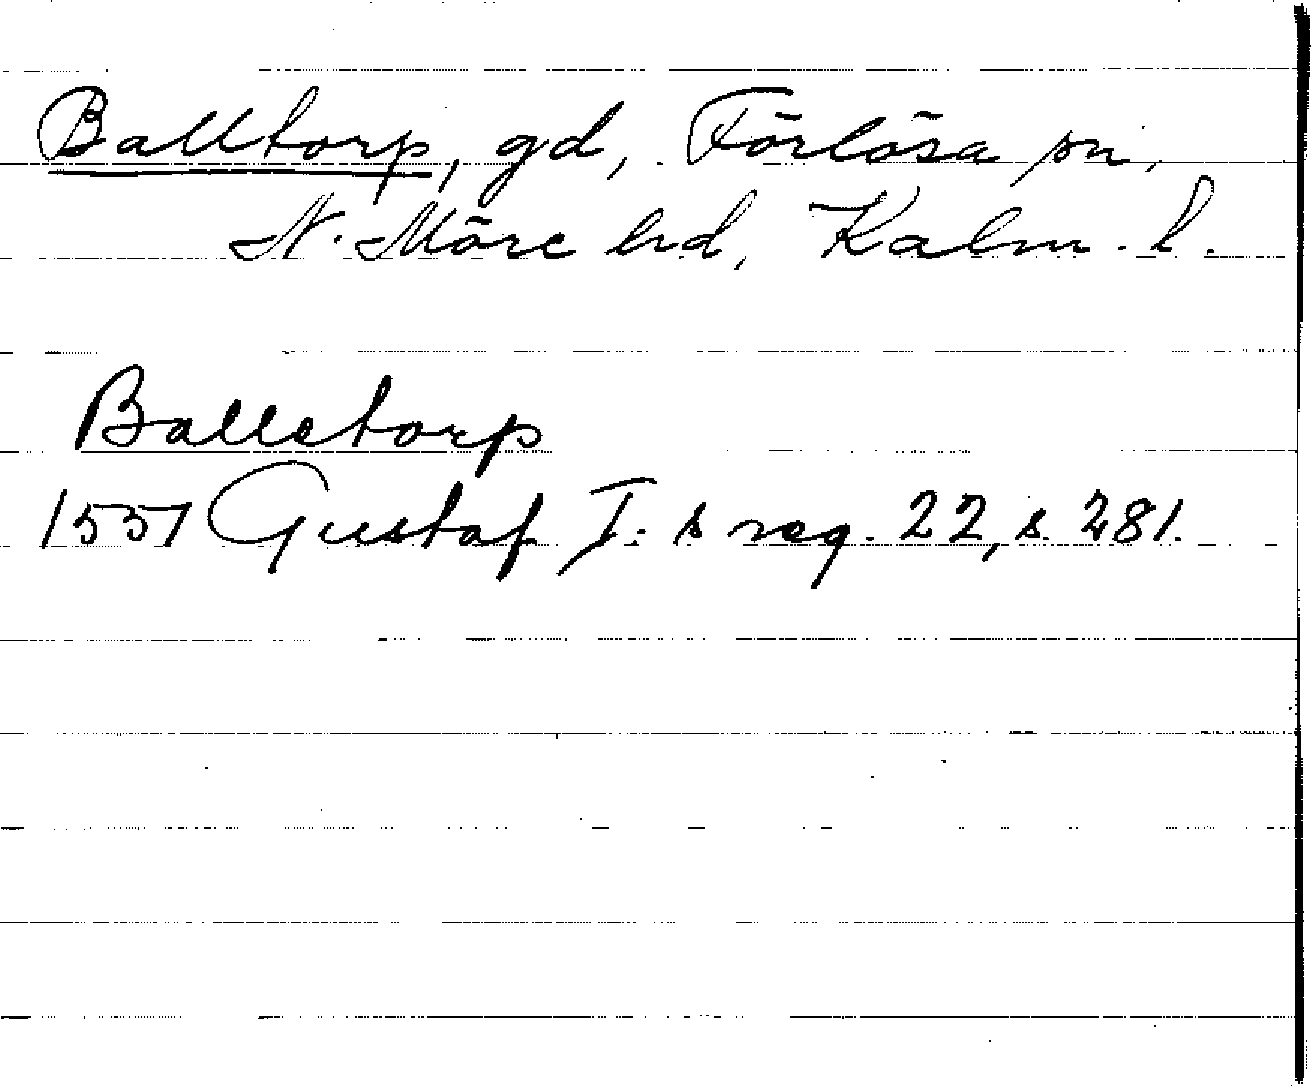 Balltorp, gd, Förlösa sn,
N. Möre hd, Kalm. l.
Balletorp
1557 Gustaf I:s reg. 22, s. 281.